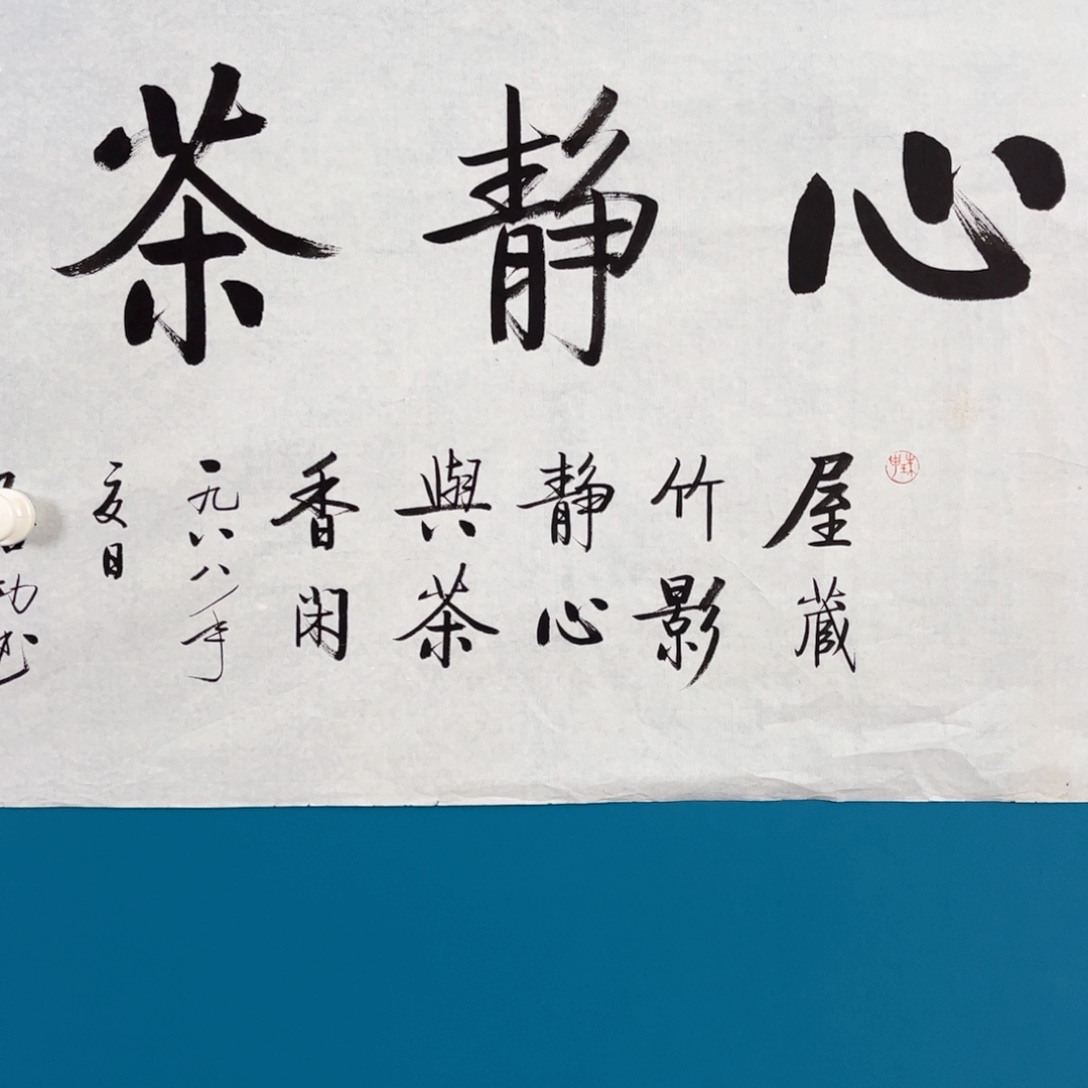 心静茶
屋藏
竹影
静心
與茶
香闲
一九八八年
夏日
功书